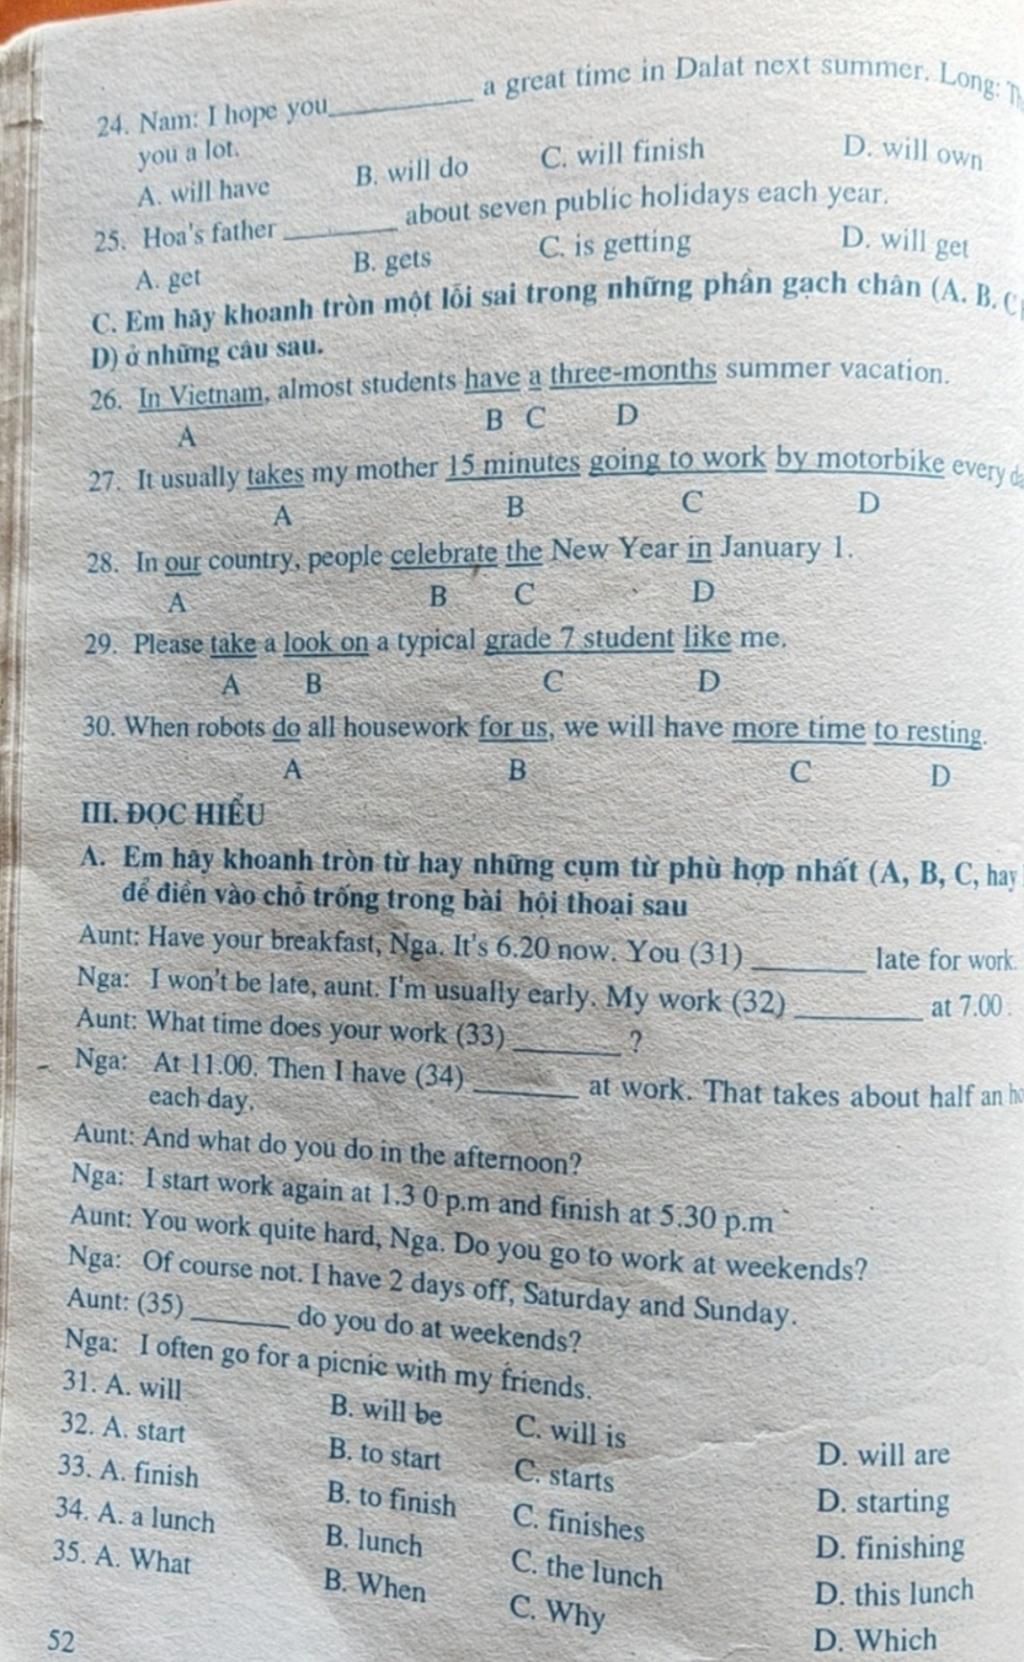 24. Nam: I hope you________ a great time in Dalat next summer. Long:
you a lot.
A. will have B. will do C. will finish D. will own
25. Hoa's father ________ about seven public holidays each year.
A. get B. gets C. is getting D. will get
C. Em hãy khoanh tròn một lỗi sai trong những phần gạch chân (A. B. C
D) ở những câu sau.
26. In Vietnam, almost students have a three-months summer vacation.
A B C D
27. It usually takes my mother 15 minutes going to work by motorbike every
A B C D
28. In our country, people celebrate the New Year in January 1.
A B C D
29. Please take a look on a typical grade 7 student like me.
A B C D
30. When robots do all housework for us, we will have more time to resting.
A B C D
III. ĐỌC HIỂU
A. Em hãy khoanh tròn từ hay những cụm từ phù hợp nhất (A, B, C, hay
để điền vào chỗ trống trong bài hội thoại sau
Aunt: Have your breakfast, Nga. It's 6.20 now. You (31) ________ late for work.
Nga: I won't be late, aunt. I'm usually early. My work (32) ________ at 7.00.
Aunt: What time does your work (33) ________ ?
Nga: At 11.00. Then I have (34) ________ at work. That takes about half an
each day.
Aunt: And what do you do in the afternoon?
Nga: I start work again at 1.3 0 p.m and finish at 5.30 p.m
Aunt: You work quite hard, Nga. Do you go to work at weekends?
Nga: Of course not. I have 2 days off, Saturday and Sunday.
Aunt: (35) ________ do you do at weekends?
Nga: I often go for a picnic with my friends.
31. A. will B. will be C. will is D. will are
32. A. start B. to start C. starts D. starting
33. A. finish B. to finish C. finishes D. finishing
34. A. a lunch B. lunch C. the lunch D. this lunch
35. A. What B. When C. Why D. Which
52